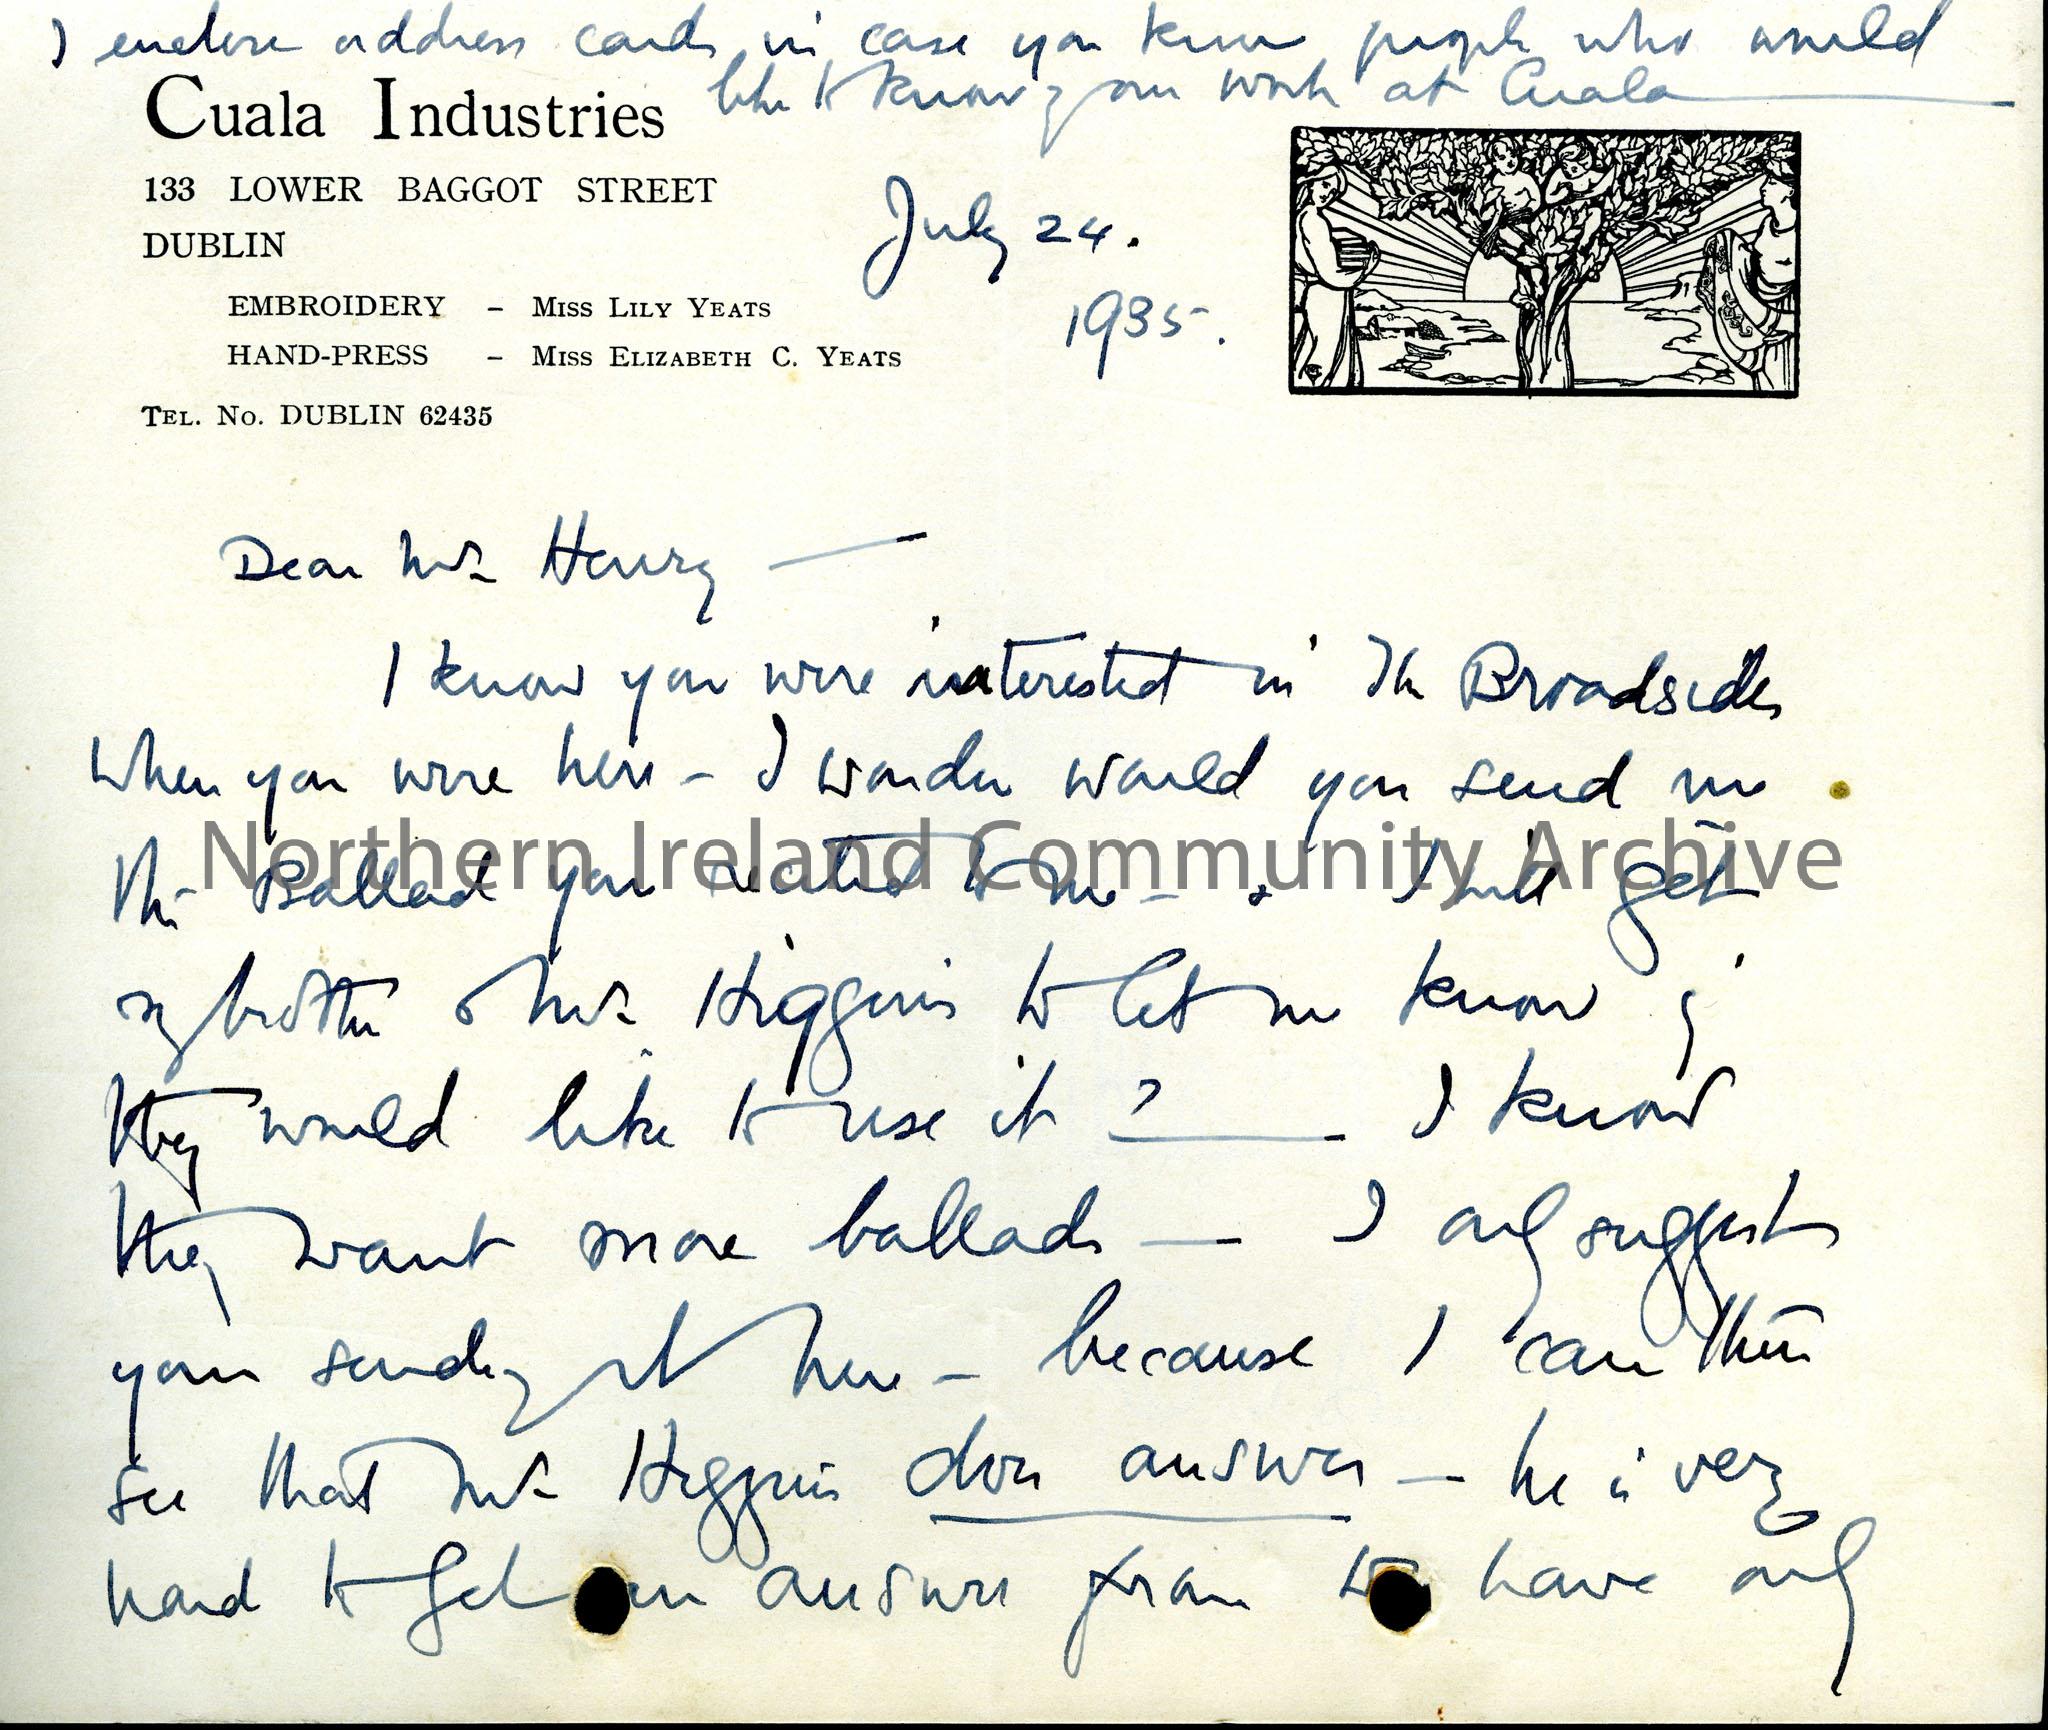 I enclose address cards in case you know people who would
like to know of our work at Cuala
Cuala Industries
133 LOWER BAGGOT STREET
DUBLIN
EMBROIDERY - MISS LILY YEATS
HAND-PRESS - MISS ELIZABETH C. YEATS
TEL. NO. DUBLIN 62435
July 24.
1935.
Dear Mr Henry —
I know you were interested in The Broadsides
when you were here - I wonder would you send me
the Ballad you recited to me - & I will get
my brother & Mr Higgins to let me know if
they would like to use it ? — I know
they want more ballads — I only suggest
your sending it here - because I can then
see that Mr Higgins does answer — he is very
hard to get an answer from we have only
Northern Ireland Community Archive